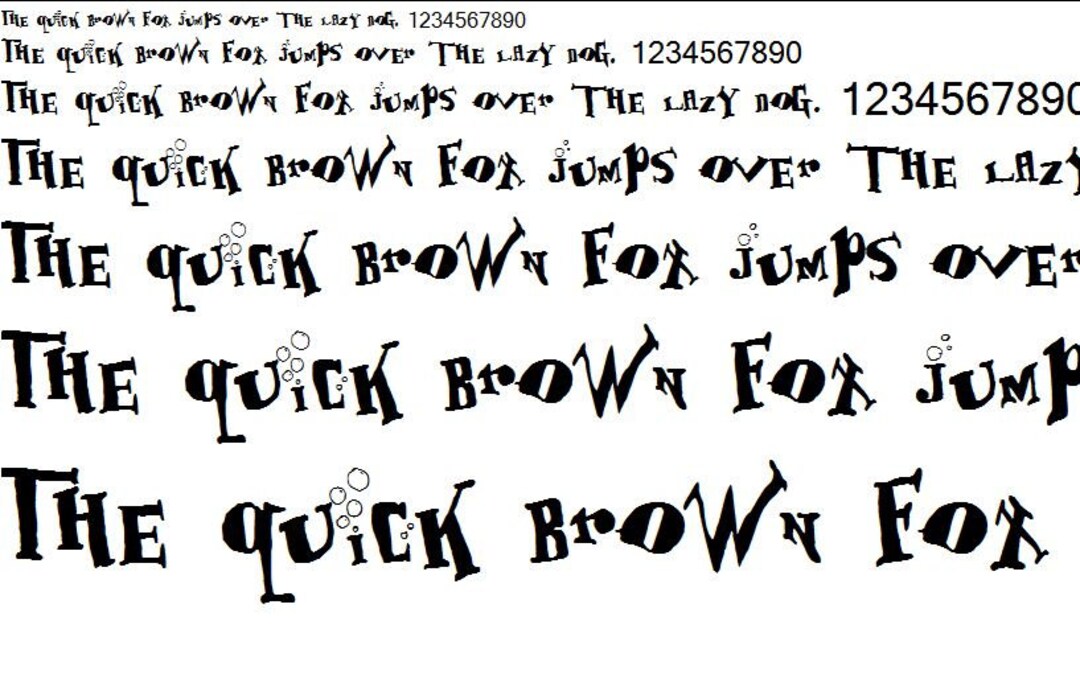 THE quiCK BroWN Fox jUMPS oVEr THE LAZY DOG. 1234567890
THE quiCK BroWN Fox jUMPS oVEr THE LAZY DOG. 1234567890
THE quiCK BroWN Fox jUMPS oVEr THE LAZY DOG. 1234567890
THE quiCK BroWN Fox jUMPS oVEr THE LAZY
THE quiCK BroWN Fox jUMPS oVEr
THE quiCK BroWN Fox jUMP
THE quiCK BroWN Fox